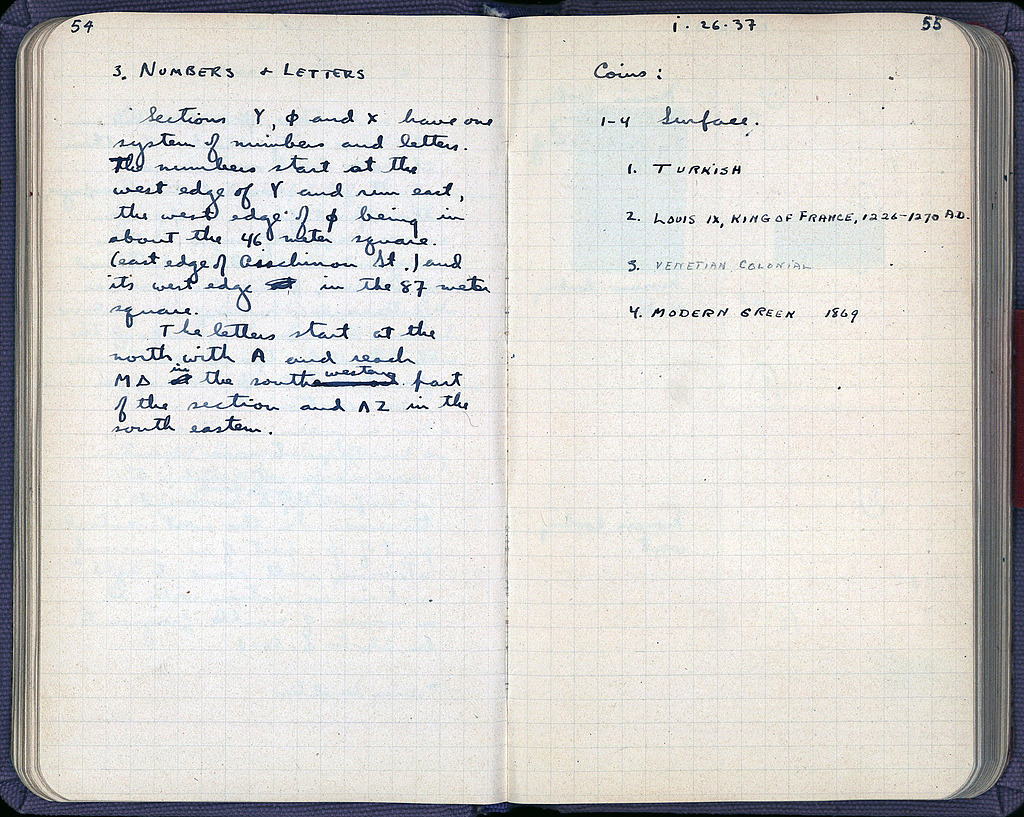 54
3. NUMBERS + LETTERS
Sections Y, φ and X have one
system of numbers and letters.
The numbers start at the
west edge of Y and run east,
the west edge of φ being in
about the 46 meter square.
(east edge of Asschinon St.) and
its west edge in the 87 meter
square.
The letters start at the
north with A and reach
MΔ in the south western part
of the section and ΛZ in the
south eastern.
i·26·37
55
Coins:
1-4 Surface.
1. TURKISH
2. LOUIS IX, KING OF FRANCE, 1226-1270 A.D.
3. VENETIAN COLONIAL
4. MODERN GREEK 1869